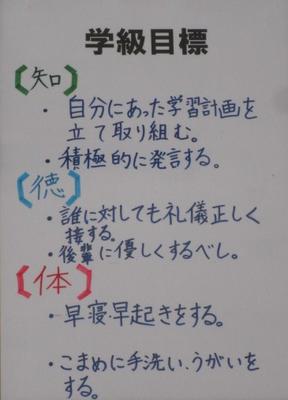 学級目標
【知】
・自分にあった学習計画を
立て取り組む。
・積極的に発言する。
【徳】
・誰に対しても礼儀正しく
接する。
・後輩に優しくするべし。
【体】
・早寝・早起きをする。
・こまめに手洗い、うがいを
する。